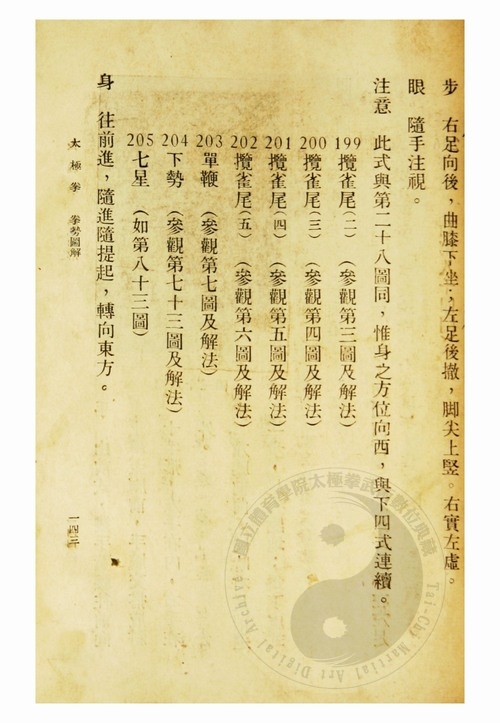 步　右足向後，曲膝下坐；左足後撤，脚尖上竪。右實左虛。
眼　隨手注視。
注意　此式與第二十八圖同，惟身之方位向西，與下四式連續。
199 攬雀尾(二)　(參觀第三圖及解法)
200 攬雀尾(三)　(參觀第四圖及解法)
201 攬雀尾(四)　(參觀第五圖及解法)
202 攬雀尾(五)　(參觀第六圖及解法)
203 單鞭　(參觀第七圖及解法)
204 下勢　(參觀第七十三圖及解法)
205 七星　(如第八十三圖)
身　往前進，隨進隨提起，轉向東方。
太極拳　拳勢圖解
一四三
國立體育學院太極拳武藝數位典藏
Tai-Chi Martial Art Digital Archive